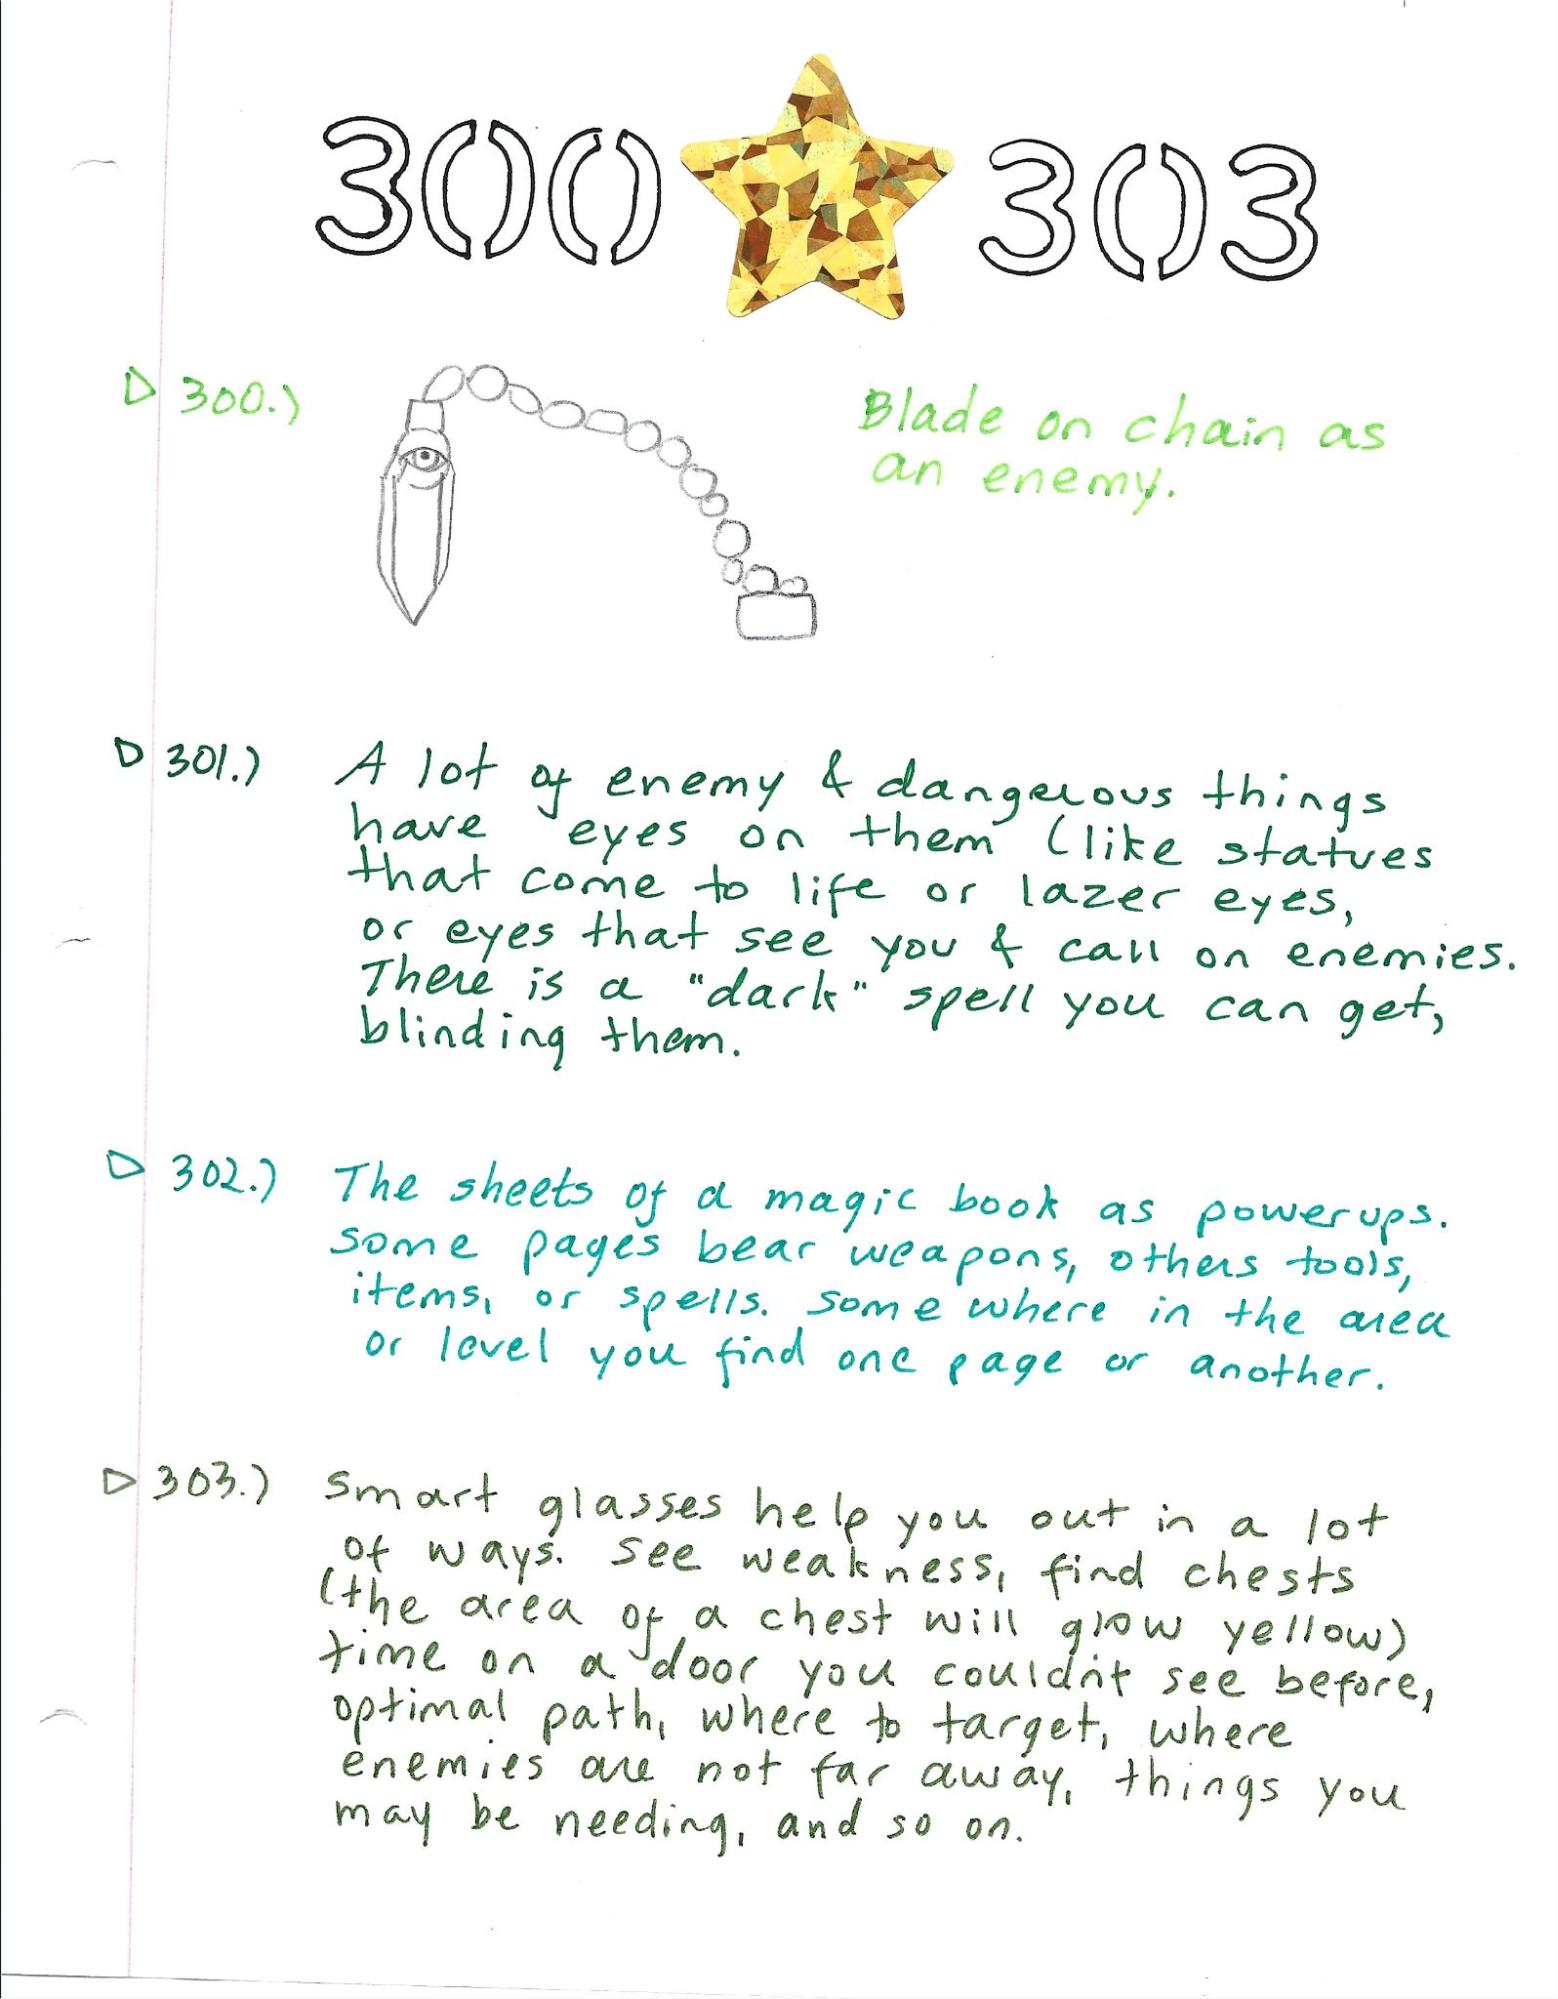 300 303
300.)
Blade on chain as
an enemy.
301.) A lot of enemy & dangerous things
have eyes on them (like statues
that come to life or lazer eyes,
or eyes that see you & call on enemies.
There is a "dark" spell you can get,
blinding them.
302.) The sheets of a magic book as powerups.
Some pages bear weapons, others tools,
items, or spells. Somewhere in the area
or level you find one page or another.
303.) Smart glasses help you out in a lot
of ways. See weakness, find chests
(the area of a chest will glow yellow)
time on a door you couldn't see before,
optimal path, where to target, where
enemies are not far away, things you
may be needing, and so on.